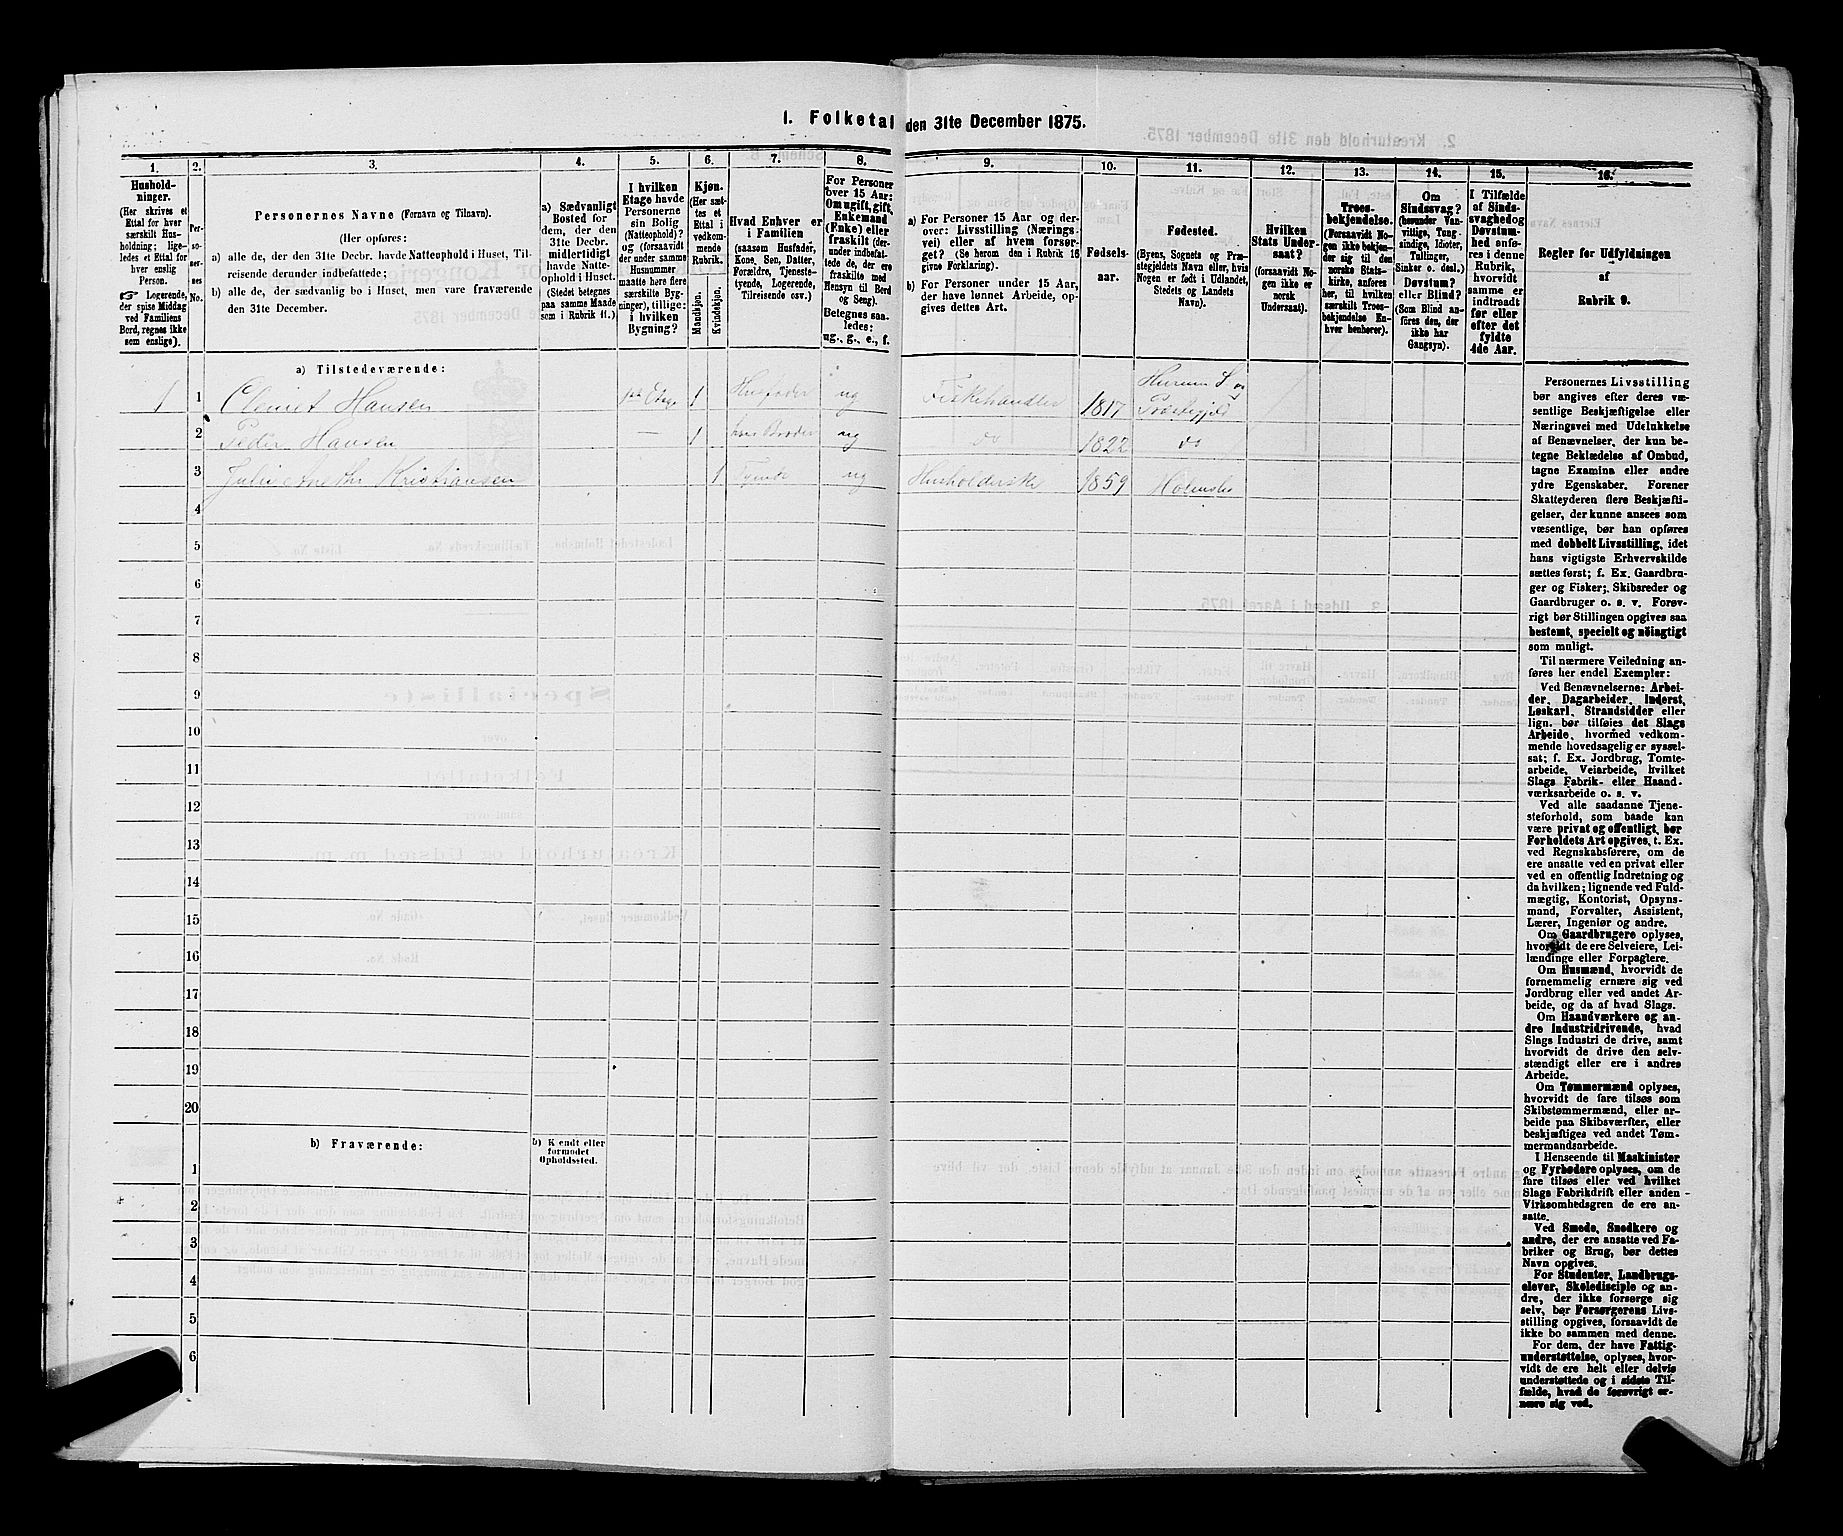 I. Folketal den 31te December 1875.
1.
Hushold-
ninger.
(Her skrives et
Ettal for hver
særskilt Hus-
holdning; lige-
ledes et Ettal for
hver enslig
Person.
☞ Logerende,
der spise Middag
ved Familiens
Bord, regnes ikke
som enslige).
2.
Per-
so-
ner-
nes
No.
3.
Personernes Navne (Fornavn og Tilnavn).
(Her opføres:
a) alle de, der den 31te Decbr. havde Natteophold i Huset, Til-
reisende derunder indbefattede;
b) alle de, der sædvanlig bo i Huset, men vare fraværende
den 31te December.
4.
a) Sædvanligt
Bosted for
dem, der den
31te Decbr.
midlertidigt
havde Natte-
ophold i Huset.
(Stedet betegnes
paa samme Maade
som i Rubrik 11.)
5.
I hvilken
Etage havde
Personerne
sin Bolig
(Natteophold)?
og (forsaavidt
der under samme
Husnummer
maatte høre flere
særskilte Byg-
ninger), tillige:
i hvilken
Bygning?
6.
Kjøn.
(Her sæt-
tes et
Ettal i
vedkom-
mende
Rubrik.
Mandkjøn.
Kvindekjøn.
7.
Hvad Enhver er
i Familien
(saasom Husfader,
Kone, Søn, Datter,
Forældre, Tjeneste-
tyende, Logerende,
Tilreisende osv.)
8.
For Personer
over 15 Aar:
Om ugift, gift,
Enkemand
(Enke) eller
fraskilt (der-
under indbefat-
tede de, der ere
fraskilte med
Hensyn til Bord
og Seng).
Betegnes saa-
ledes:
ug., g., e., f.
9.
a) For Personer 15 Aar og der-
over: Livsstilling (Nærings-
vei) eller af hvem forsør-
get? (Se herom den i Rubrik 16
givne Forklaring).
b) For Personer under 15 Aar,
der have lønnet Arbeide, op-
gives dettes Art.
10.
Fødsels-
aar.
11.
Fødested.
(Byens, Sognets og Præ-
stegjeldets Navn eller, hvis
Nogen er født i Udlandet,
Stedets og Landets
Navn).
12.
Hvilken
Stats Under-
saat?
(forsaavidt No-
gen ikke er
norsk
Undersaat).
13.
Troes-
bekjendelse.
(Forsaavidt No-
gen ikke bekjen-
der sig til den
norske Stats-
kirke, anføres
her, til hvilken
særskilt Troes-
bekjendelse En-
hver henhører).
14.
Om
Sindssvag?
(herunder Van-
vittige, Tung-
sindige, Idioter,
Tullinger,
Sinker o. desl.)
Døvstum?
eller Blind?
(Som Blind an-
føres den, der
ikke har
Gangsyn).
15.
I Tilfælde
af Sinds-
svaghed og
Døvstum-
hed anfø-
res i denne
Rubrik,
hvorvidt
samme er
indtraadt
før eller
efter det
fyldte
4de Aar.
16.
Regler for Udfyldningen
af
Rubrik 9.
a) Tilstedeværende:
1 1 Clemet Hansen 1ste Etage 1 Husfader ug Fiskehandler 1817 Hurum S og Præstegjeld
2 Peder Hansen — 1 hans Broder ug do 1822 do
3 Kristiansen 1 Tyende ug Husholderske 1859 Holmsbo
4
5
6
7
8
9
10
11
12
13
14
15
16
17
18
19
20
b) Fraværende:
b) Kjendt eller
formodet
Opholdssted.
1
2
3
4
5
6
Personernes Livsstilling
bør angives efter deres væ-
sentlige Beskjæftigelse eller
Næringsvei med Udelukkelse
af Benævnelser, der kun be-
tegne Beklædelse af Ombud,
tagne Examina eller andre
ydre Egenskaber. Forener
Skatteyderen flere Beskjæfti-
gelser, der kunne ansees som
væsentlige, bør han opføres
med dobbelt Livsstilling, idet
hans vigtigste Erhvervskilde
sættes først; f. Ex. Gaardbru-
ger og Fisker; Skibsreder og
Gaardbruger o. s. v. Forøv-
rigt bør Stillingen opgives saa
bestemt, specielt og nøiagtigt
som muligt.
Til nærmere Veiledning an-
føres her endel Exempler:
Ved Benævnelserne: Arbei-
der, Dagarbeider, Inderst,
Løskarl, Strandsidder eller
lign. bør tilføies det Slags
Arbeide, hvormed vedkom-
mende hovedsagelig er syssel-
sat; f. Ex. Jordbrug, Tomte-
arbeide, Veiarbeide, hvilket
Slags Fabrik- eller Haand-
værksarbeide o. s. v.
Ved alle saadanne Tjene-
steforhold, som baade kan
være privat og offentligt, bør
Forholdets Art opgives, t. Ex.
ved Regnskabsførere, om de
ere ansatte ved en privat eller
ved en offentlig Indretning og
da hvilken; lignende ved Fuld-
mægtig, Kontorist, Opsyns-
mand, Forvalter, Assistent,
Lærer, Ingeniør og andre.
Om Gaardbrugere oplyses,
hvorvidt de ere Selveiere, Lei-
lændinge eller Forpagtere.
Om Husmænd, hvorvidt de
fornemmelig ernære sig ved
Jordbrug eller ved andet Ar-
beide, og da af hvad Slags.
Om Haandværkere og an-
dre Industridrivende, hvad
Slags Industri de drive, samt
hvorvidt de drive den selv-
stændigt eller ere i andres
Arbeide.
Om Tømmermænd oplyses,
hvorvidt de fare tilsøs som
Skibstømmermænd, eller ar-
beide paa Skibsværfter, eller
beskjæftiges ved andet Tøm-
mermandsarbeide.
I Henseende til Maskinister
og Fyrbødere oplyses, om de
fare tilsøs eller ved hvilket
Slags Fabrikdrift eller anden
Virksomhedsgren de ere an-
satte.
Ved Smede, Snedkere og
andre, der ere ansatte ved Fa-
briker og Brug, bør dettes
Navn opgives.
For Studenter, Landbrugs-
elever, Skoledisciple og an-
dre, der ikke forsørge sig
selv, bør Forsørgerens Livs-
stilling opgives, forsaavidt de
ikke bo sammen med denne.
For dem, der have Fattig-
understøttelse, oplyses, hvor-
vidt de ere helt eller delvis
understøttede og i sidste Til-
fælde, hvad de forøvrigt er-
nære sig ved.